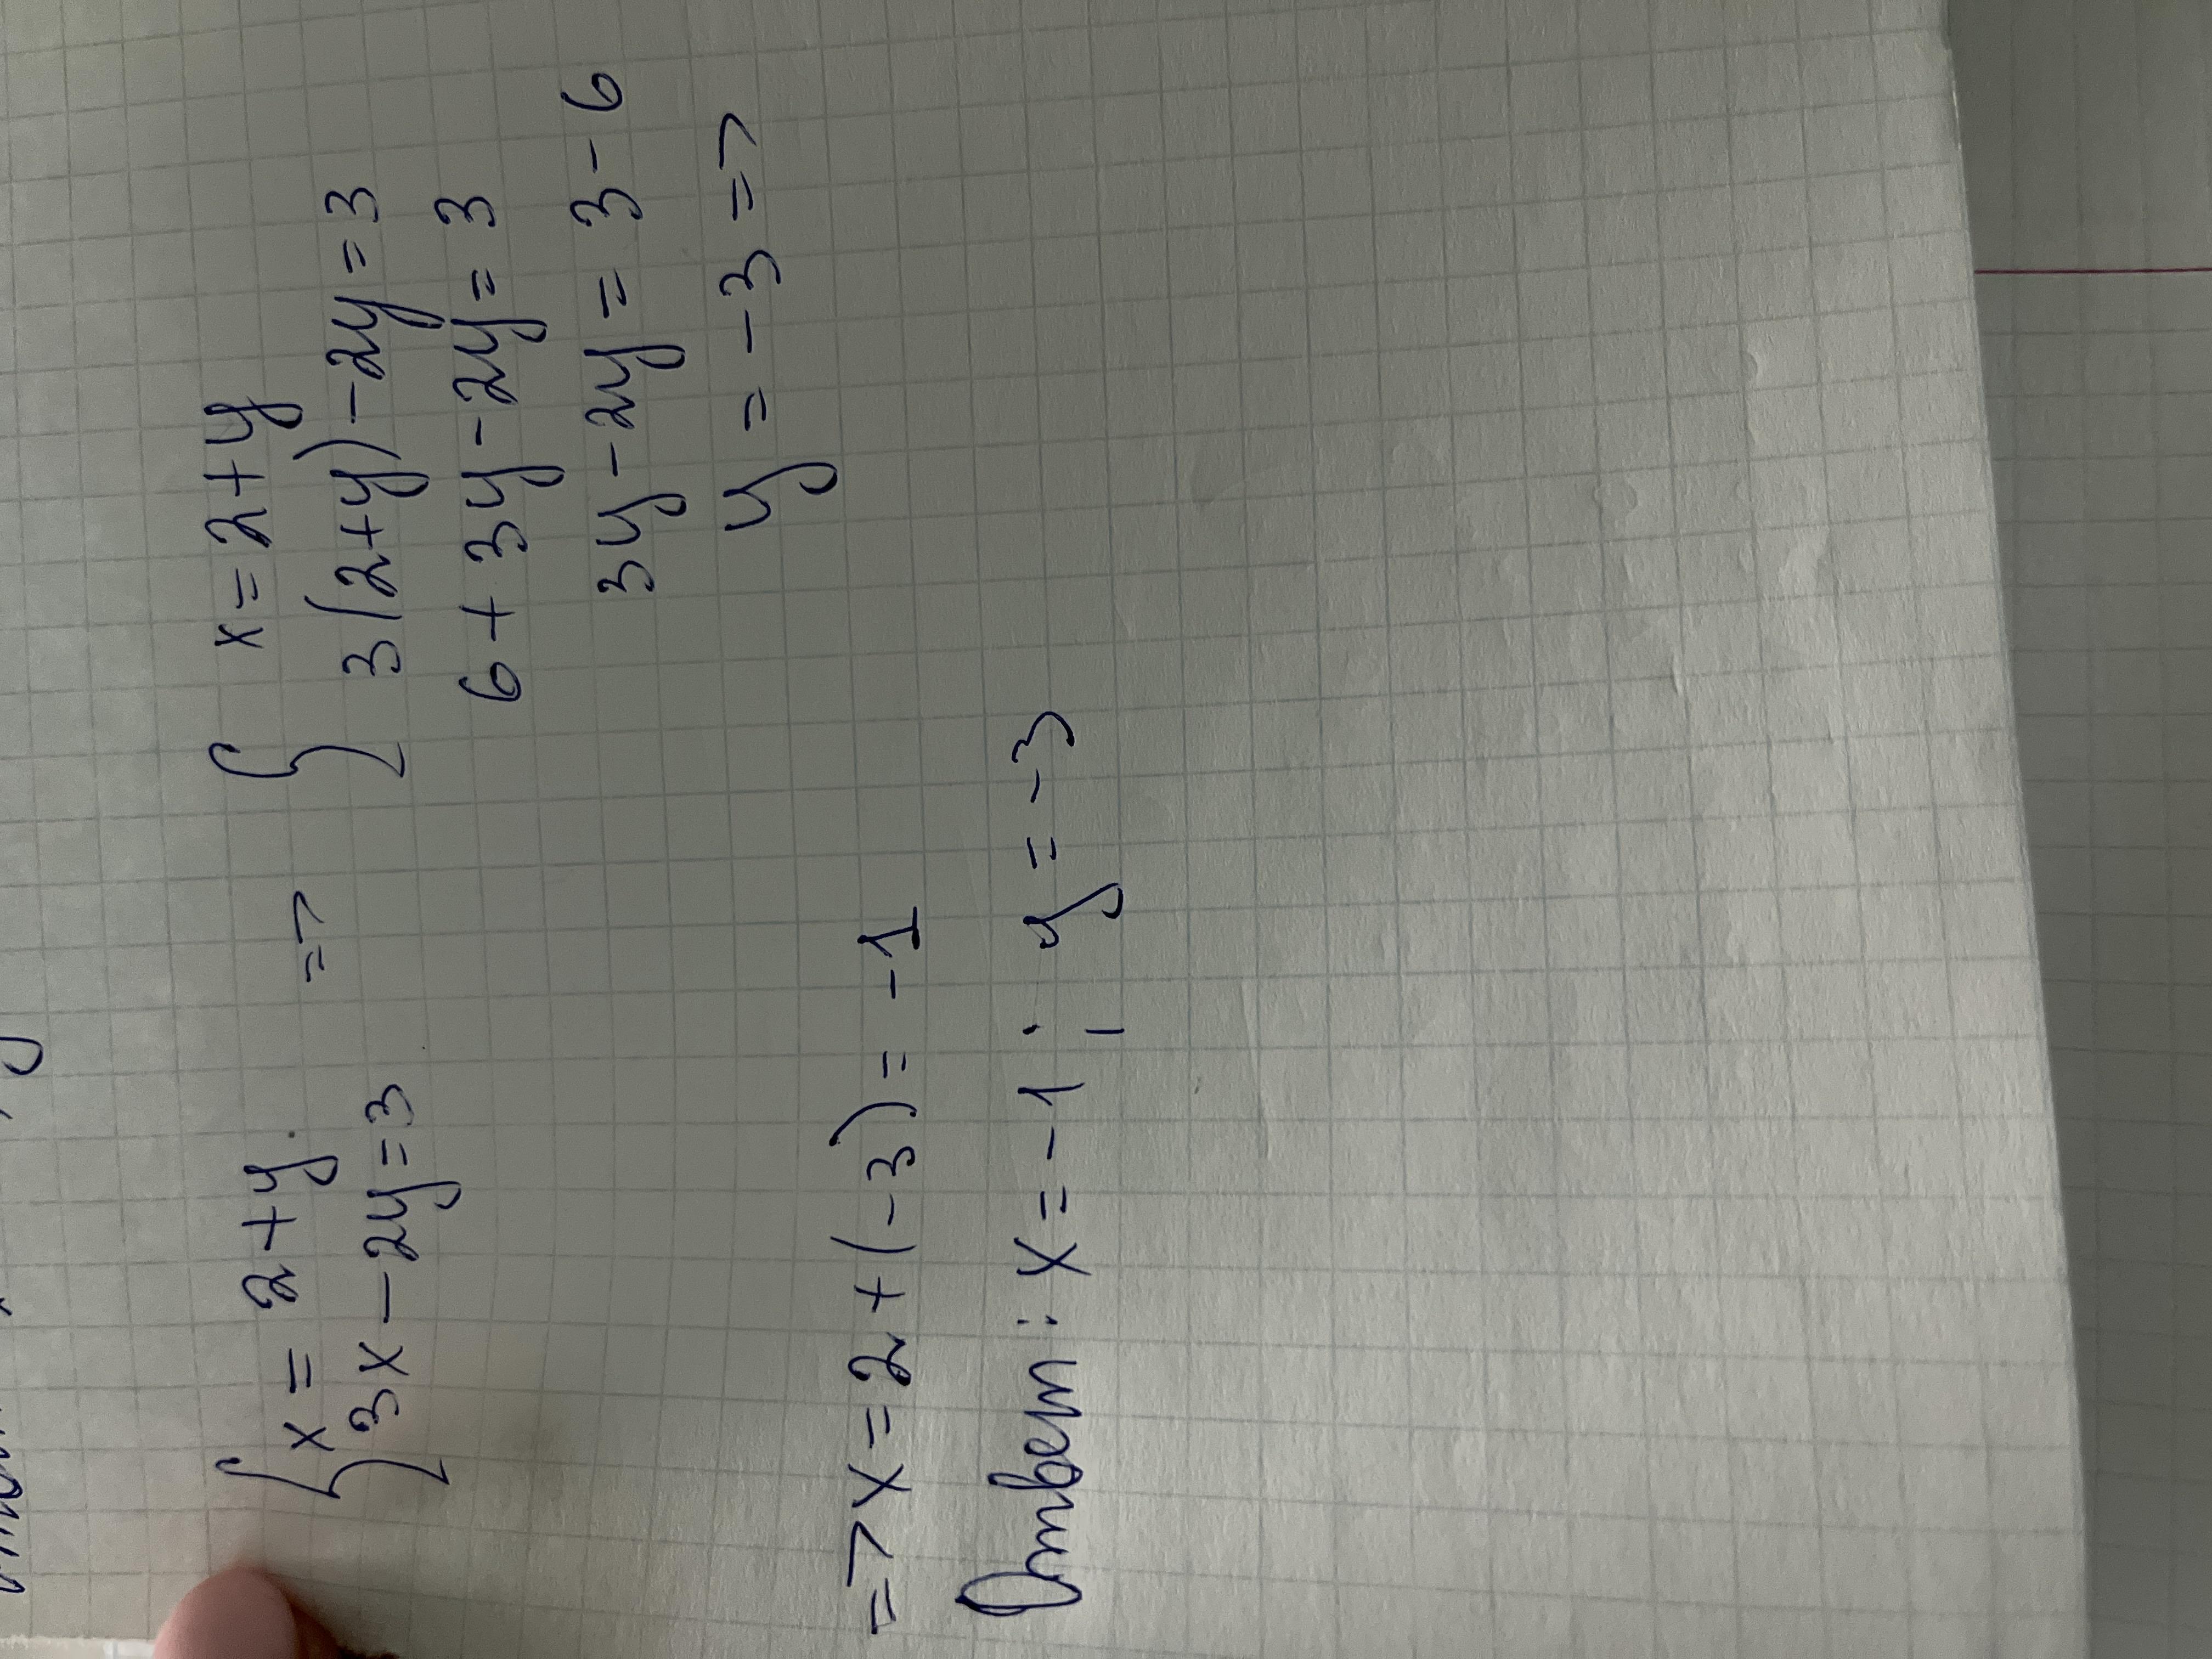 { x = 2 + y => { x = 2 + y
3x - 2y = 3 3(2+y) - 2y = 3
6 + 3y - 2y = 3
3y - 2y = 3 - 6
y = -3 =>
=> x = 2 + (-3) = -1
Ответ: x = -1; y = -3